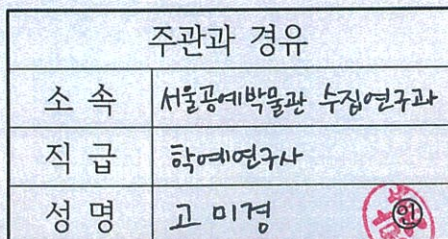 주관과 경유
소 속 서울공예박물관 수집연구과
직 급 학예연구사
성 명 고 미경 ㊞